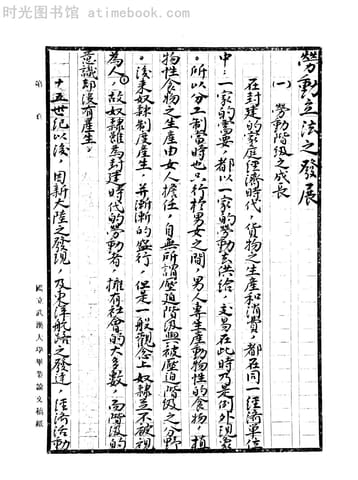 时光图书馆 - www.atimebook.com
勞動立法之發展
(一) 勞動階級之成長
在封建的家庭經濟時代，貨物之生產和消費，都在同一經濟單位
中；一家的需要，都以一家的勞動去供給，交易在此時乃是例外現象
。所以分工制當時也只行於男女之間，男人專生產動物性的食物，植
物性食物之生產由女人擔任，自無所謂壓迫階級與被壓迫階級之分野
。後來奴隸制度產生，并漸漸的盛行，但是一般觀念上奴隸並不被視
為人。故奴隸雖為封建時代的勞動者，擁有社會的大多數，而階級的
意識却没有產生。
十五世紀以後，因新大陸之發現，及東洋航路之發達，經濟活動
第 頁
國立武漢大學畢業論文稿紙